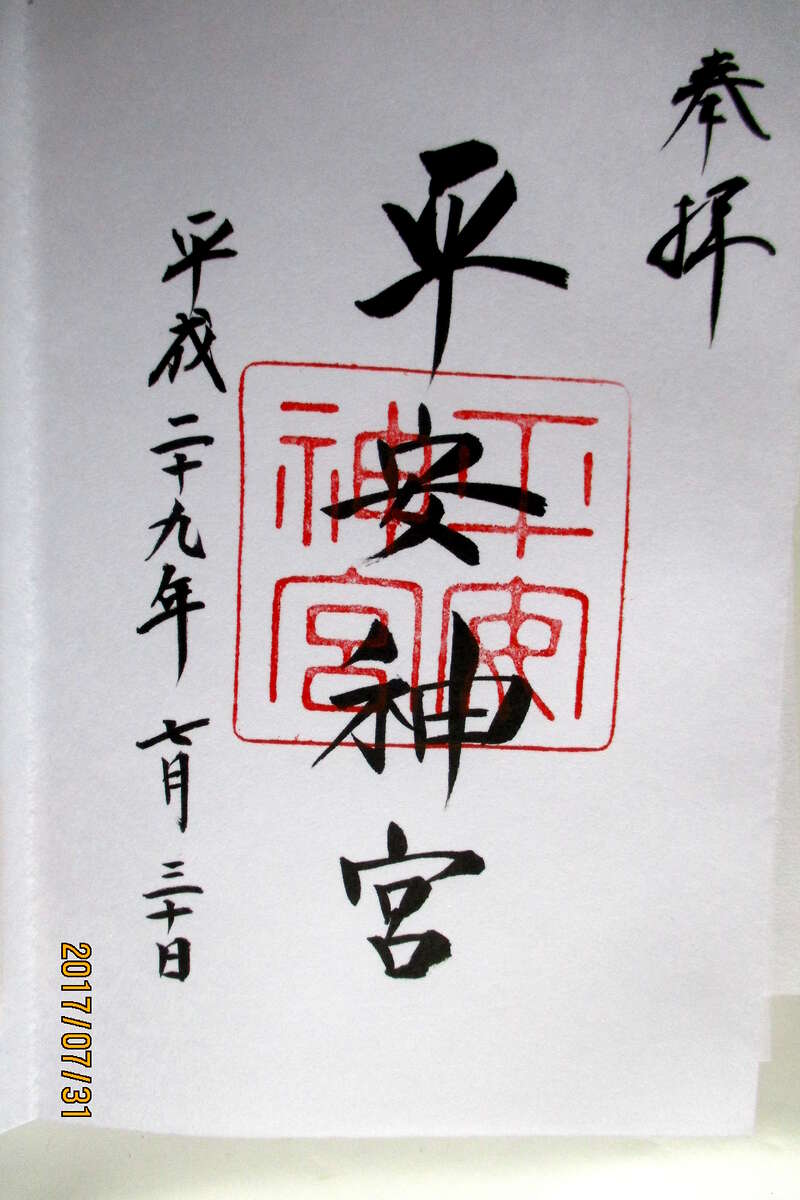 奉拝
平安神宮
平安神宮
平成二十九年七月三十日
2017/07/31